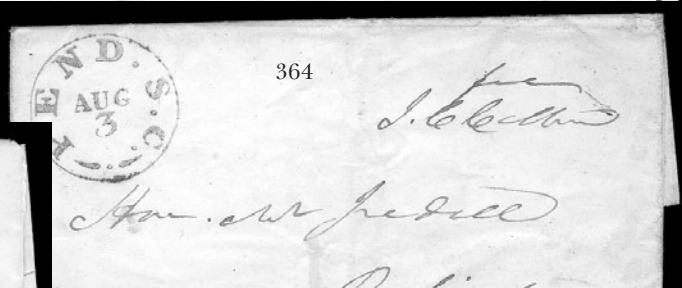 PEND. S.C.
AUG
3
364
free
J. C. Calhoun
Hon. Mr Iredell